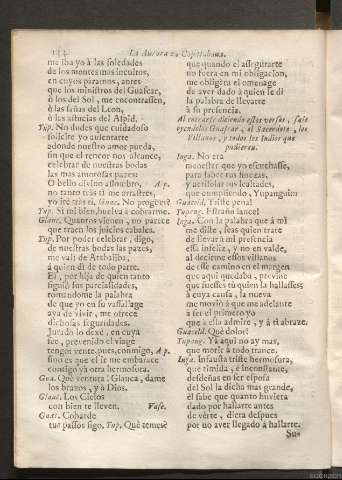 134
La Aurora en Copacabana.
me iba yo à las soledades
de los montes mas incultos,
en cuyos paramos, antes
que los ministros del Guascar,
ò los del Sol, me encontrassen,
ò las sañas del Leon,
ò las astucias del Aspid.
Tup. No dudes que cuidadoso
solicite yo ausentarte
adonde nuestro amor pueda,
sin que el rencor nos alcance,
celebrar de nuestras bodas
las mas amorosas pazes:
O bello divino assombro, A p.
no tanto tràs ti me arrastres,
yo irè tràs ti. Guac. No prosigas
Tup. Si mi bien, huelva a cobrarme.
Glauc. Quantos vienen, no parece
que traen los juicios cabales.
Tup. Por poder celebrar, digo,
de nuestras bodas las pazes,
me valì de Atabaliba,
à quien di de todo parte.
El, por hija de quien tanto
siguiò sus parcialidades,
tomandome la palabra
de que yo en su vassallage
aya de vivir, me ofrece
dichosas seguridades.
Jurado lo dexè, en cuya
fee, prevenido el viage
tengo: vente pues, conmigo, A p.
sino es que el ir me embarace
consigo yà otra hermosura.
Gua. Què ventura! Glauca, dame
los brazos, y à Dios.
Glauc. Los Cielos
con bien te lleven. Vase.
Guac. Cobarde
tus passos sigo. Tup. Què temes?
que quando el assegurarte
no fuera en mi obligacion,
me obligàra el omenage
de aver dado à quien le di
la palabra de llevarte
à su presencia.
Al entrarse diciendo estos versos, sale
oyendolos Guascar, el Sacerdote, los
Villanos, y todos los Indios que
pudieren.
Inga. No era
menester que yo escuchasse,
para saber tus finezas,
y acrisolar tus lealtades,
que cumpliendo, Yupanguì
Guacold. Triste pena!
Yupang. Estraño lance!
Inga. Con la palabra que à mì
me diste, seas quien trate
de llevar à mi presencia
essa infeliz, y no en valde,
al decirme essos villanos
de esse camino en el margen
que aqui quedaba, previne
que fuesses tù quien la hallasses:
à cuya causa, la nueva
me moviò à que me adelante
à ser el primero yo
que à ella admire, y à ti abraze.
Guacold. Què dolor!
Yupang. Yà aqui no ay mas,
que morir à todo trance.
Inga. Infausta triste hermosura,
que timida, è inconstante,
desdeñas en ser esposa
del Sol la dicha mas grande,
èl sabe que quanto huviera
dado por hallarte antes
de verte, diera despues
por no aver llegado à hallarte.
Su-